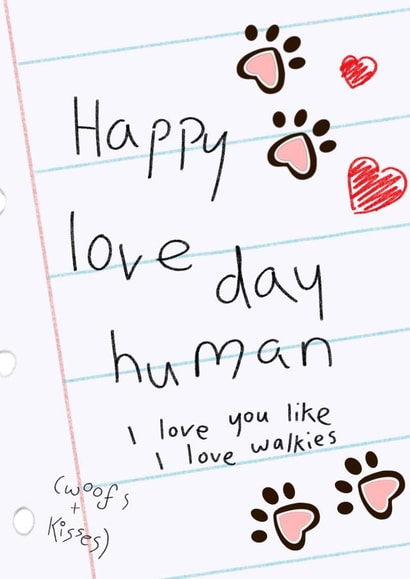 Happy
love day
human
I love you like
I love walkies
(woofs
+
kisses)